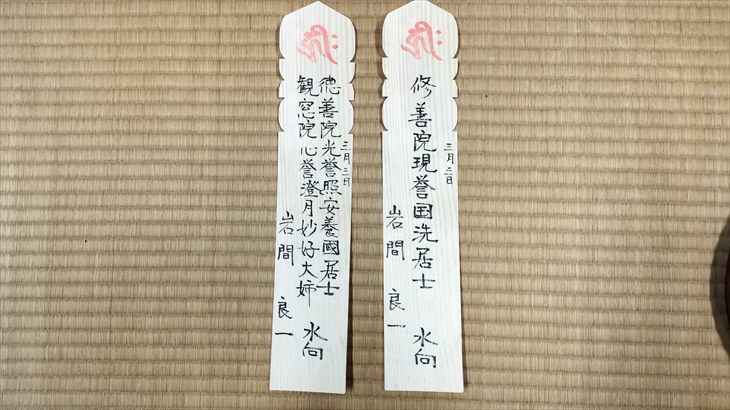 三月二日
修善院現誉国洗居士 水向
岩間 良一
三月二日
徳善院光誉照安養國居士
観窓院心誉澄月妙好大姉 水向
岩間 良一